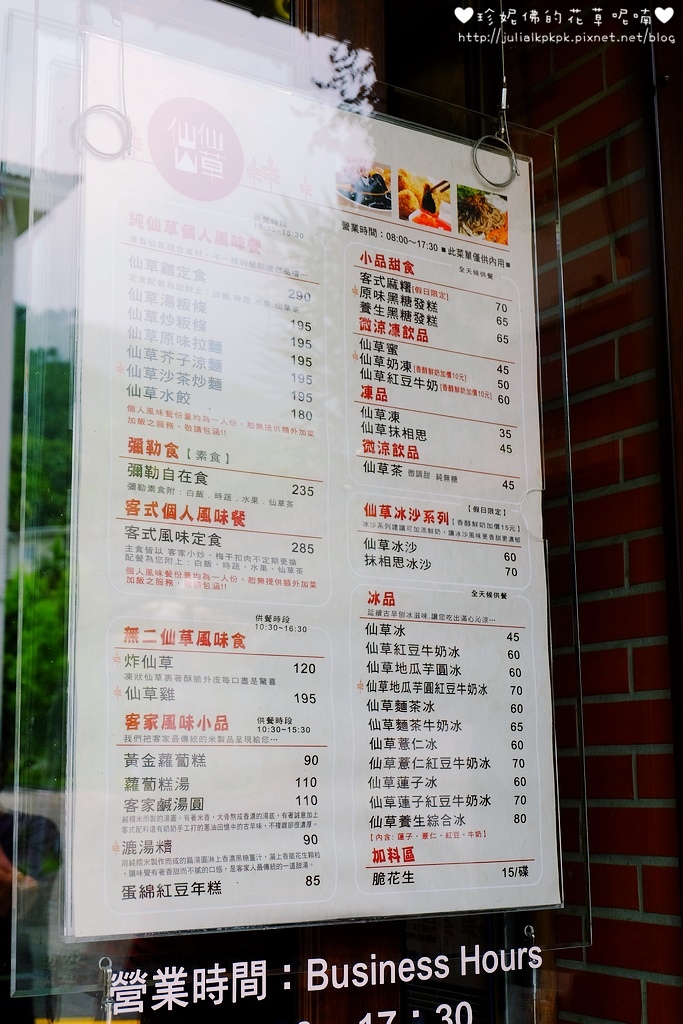 ♥珍妮佛的花草呢喃♥
http://julialkpkpk.pixnet.net/blog
仙仙草
營業時間：08:00～17:30 ■此菜單僅供內用■
純仙草個人風味餐
仙草雞定食 290
仙草湯粄條 195
仙草炒粄條 195
仙草原味拉麵 195
仙草芥子涼麵 195
仙草沙茶炒麵 195
仙草水餃 180
個人風味餐份量均為一人份，恕無提供額外加菜
加飯之服務，敬請包涵!!
彌勒食【素食】
彌勒自在食 235
彌勒素食附：白飯．時蔬．水果、仙草茶
客式個人風味餐
客式風味定食 285
主食皆以 客家小炒、梅干扣肉不定期更換
配餐為您附上：白飯、時蔬、水果、仙草茶
個人風味餐份量均為一人份，恕無提供額外加菜
加飯之服務，敬請包涵!!
供餐時段
10:30~16:30
無二仙草風味食
炸仙草 120
凍狀仙草裹著酥脆外皮每口盡是驚喜
仙草雞 195
客家風味小品 供餐時段
10:30~15:30
我們把客家最傳統的米製品呈現給您…
黃金蘿蔔糕 90
蘿蔔糕湯 110
客家鹹湯圓 110
漉湯糩 90
蛋綿紅豆年糕 85
小品甜食 全天候供餐
客式麻糬[假日限定] 70
原味黑糖發糕 65
養生黑糖發糕 65
微涼凍飲品
仙草蜜 45
仙草奶凍[香醇鮮奶加價10元] 50
仙草紅豆牛奶[香醇鮮奶加價10元] 60
凍品
仙草凍 35
仙草抹相思 45
微涼飲品
仙草茶 微調甜 純無糖 45
仙草冰沙系列 【假日限定】
【香醇鮮奶加價15元】
冰沙系列建議可加添鮮奶，讓冰沙風味更香甜更濃郁
仙草冰沙 60
抹相思冰沙 70
冰品 全天候供餐
延續古早刨冰滋味.讓您吃出滿心沁涼…
仙草冰 45
仙草紅豆牛奶冰 60
仙草地瓜芋圓冰 60
仙草地瓜芋圓紅豆牛奶冰 70
仙草麵茶冰 60
仙草麵茶牛奶冰 65
仙草薏仁冰 60
仙草薏仁紅豆牛奶冰 70
仙草蓮子冰 60
仙草蓮子紅豆牛奶冰 70
仙草養生綜合冰 80
【內含: 蓮子．薏仁．紅豆．牛奶】
加料區
脆花生 15/碟
營業時間：Business Hours
17：30